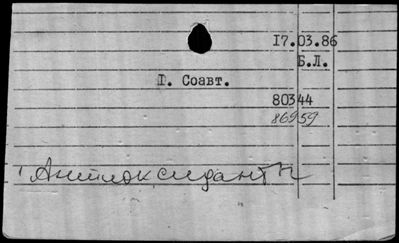 17.03.86
Б.Л.
I. Соавт.
80344
86959
Антиоксиданты